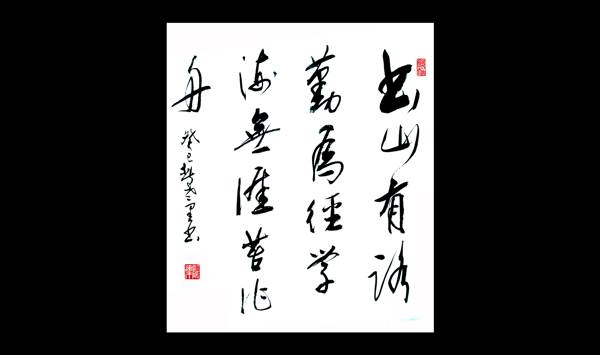 书山有路
勤為徑学
海無涯苦作
舟
癸巳